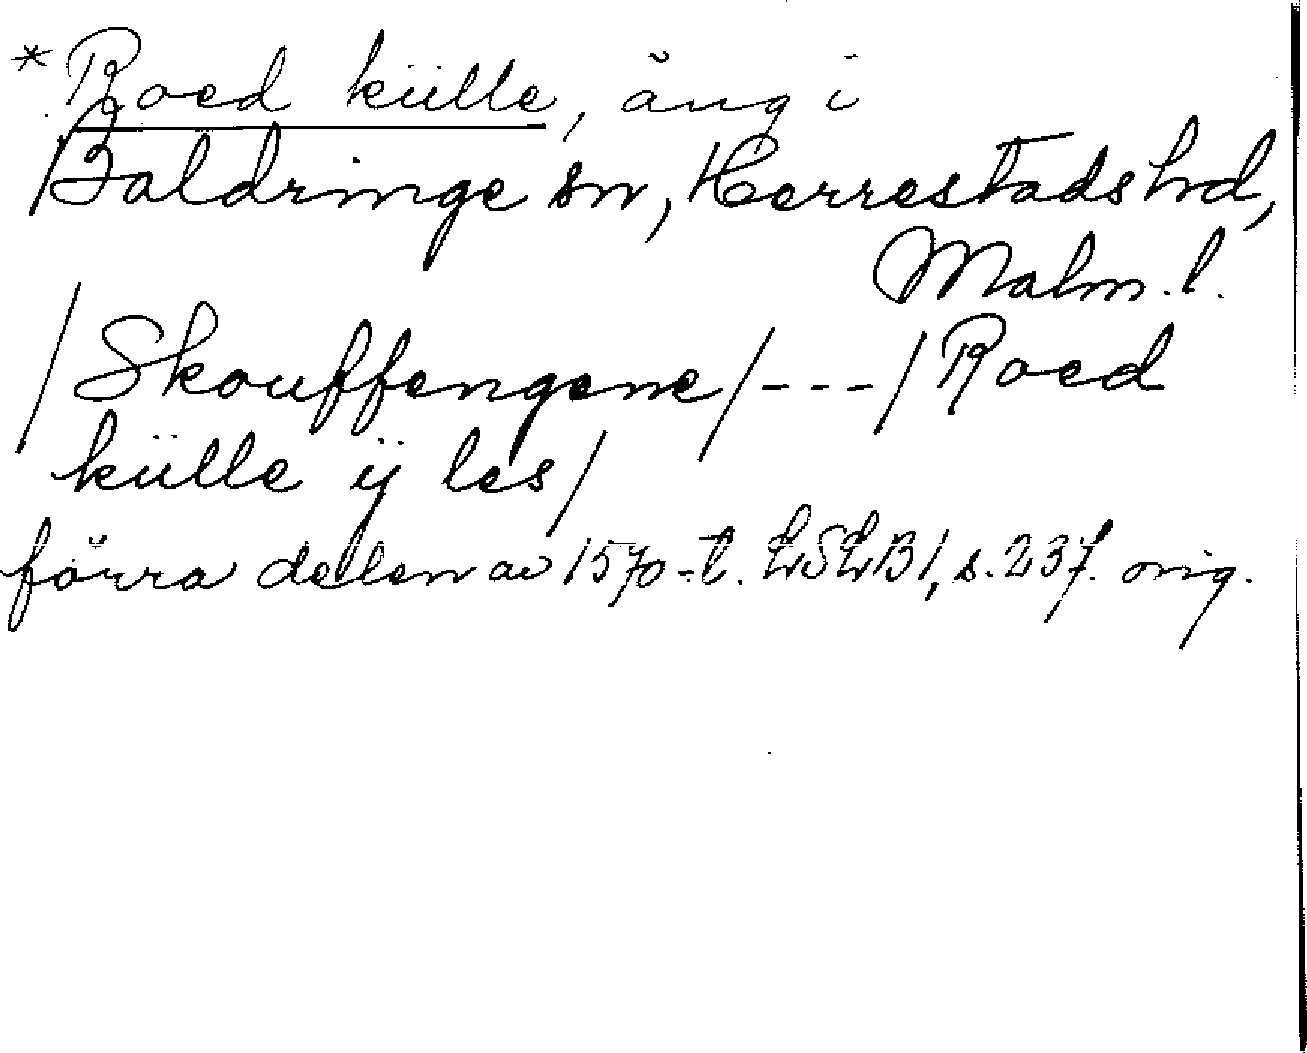 * Roed külle, äng i
Baldringe sn, Herrestads hd,
Malm. l.
/Skouffengene/---/Roed
külle ij les/
förra delen av 1570-t. LSLB1, s. 237. orig.